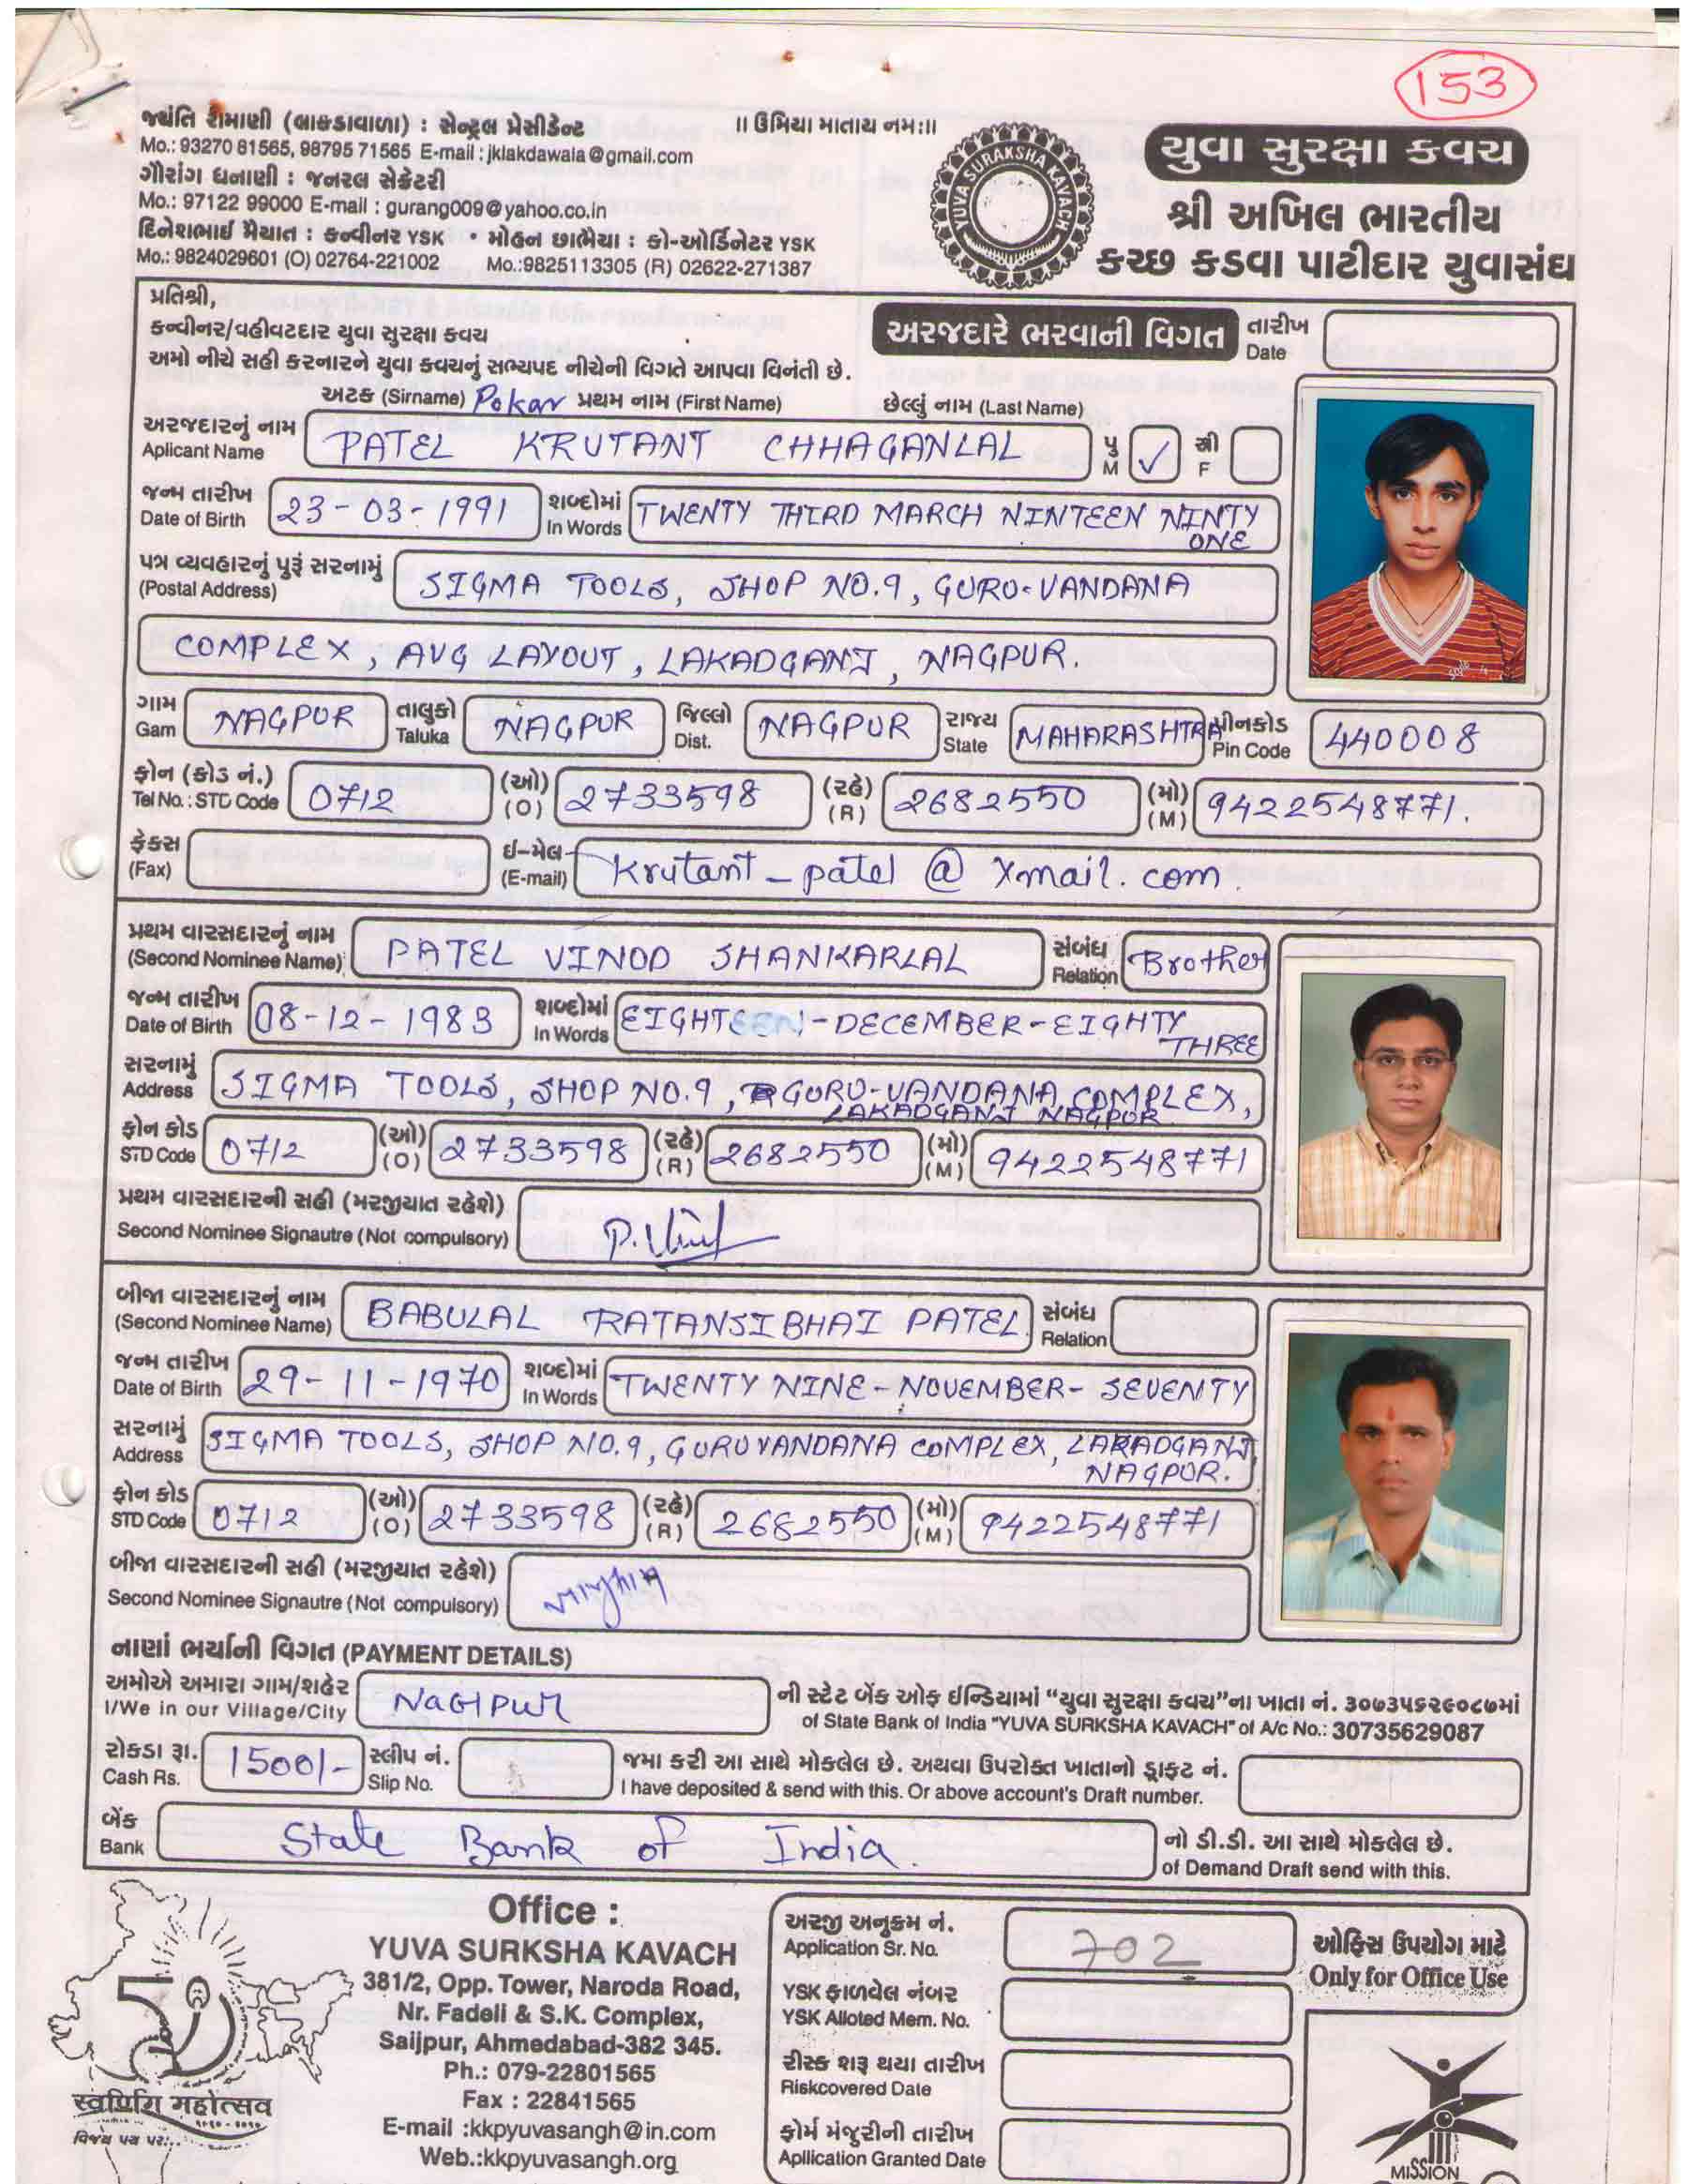 153
જયંતિ રામાણી (લાકડાવાળા) : સેન્ટ્રલ પ્રેસીડેન્ટ
Mo.: 93270 81565, 98795 71565 E-mail : jklakdawala@gmail.com
ગૌરાંગ ધનાણી : જનરલ સેક્રેટરી
Mo.: 97122 99000 E-mail : gurang009@yahoo.co.in
દિનેશભાઈ મૈયાત : કન્વીનર YSK • મોહન છાભૈયા : કો-ઓર્ડિનેટર YSK
Mo.: 9824029601 (O) 02764-221002 Mo.:9825113305 (R) 02622-271387
॥ ઉમિયા માતાય નમ:॥
YUVA SURAKSHA KAVACH
યુવા સુરક્ષા કવચ
શ્રી અખિલ ભારતીય
કચ્છ કડવા પાટીદાર યુવાસંઘ
પ્રતિશ્રી,
કન્વીનર/વહીવટદાર યુવા સુરક્ષા કવચ
અમો નીચે સહી કરનારને યુવા કવચનું સભ્યપદ નીચેની વિગતે આપવા વિનંતી છે.
અરજદારે ભરવાની વિગત
તારીખ
Date
અટક (Sirname) Pokar પ્રથમ નામ (First Name) છેલ્લું નામ (Last Name)
અરજદારનું નામ
Aplicant Name PATEL KRUTANT CHHAGANLAL પુ M ✓ સ્રી F
જન્મ તારીખ
Date of Birth 23-03-1991 શબ્દોમાં In Words TWENTY THIRD MARCH NINTEEN NINTY
ONE
પત્ર વ્યવહારનું પુરૂં સરનામું
(Postal Address) SIGMA TOOLS, SHOP NO.9, GURU-VANDANA
COMPLEX, AVG LAYOUT, LAKADGANJ, NAGPUR.
ગામ
Gam NAGPUR તાલુકો Taluka NAGPUR જિલ્લો Dist. NAGPUR રાજ્ય State MAHARASHTRA પીનકોડ Pin Code 440008
ફોન (કોડ નં.)
Tel No.: STD Code 0712 (ઓ) (O) 2733598 (રહે) (R) 2682550 (મો) (M) 9422548771.
ફેકસ
(Fax) ઈ-મેલ (E-mail) Krutant_patel @ Xmail.com.
પ્રથમ વારસદારનું નામ
(Second Nominee Name) PATEL VINOD SHANKARLAL સંબંધ Relation Brother
જન્મ તારીખ
Date of Birth 08-12-1983 શબ્દોમાં In Words EIGHTEEN-DECEMBER-EIGHTY
THREE
સરનામું
Address SIGMA TOOLS, SHOP NO.9, GURU-VANDANA COMPLEX,
LAKADGANJ NAGPUR
ફોન કોડ
STD Code 0712 (ઓ) (O) 2733598 (રહે) (R) 2682550 (મો) (M) 9422548771
પ્રથમ વારસદારની સહી (મરજીયાત રહેશે)
Second Nominee Signautre (Not compulsory)
બીજા વારસદારનું નામ
(Second Nominee Name) BABULAL RATANSIBHAI PATEL. સંબંધ Relation
જન્મ તારીખ
Date of Birth 29-11-1970 શબ્દોમાં In Words TWENTY NINE-NOVEMBER-SEVENTY
સરનામું
Address SIGMA TOOLS, SHOP NO.9, GURUVANDANA COMPLEX, LAKADGANJ
NAGPUR.
ફોન કોડ
STD Code 0712 (ઓ) (O) 2733598 (રહે) (R) 2682550 (મો) (M) 9422548771
બીજા વારસદારની સહી (મરજીયાત રહેશે)
Second Nominee Signautre (Not compulsory)
નાણાં ભર્યાની વિગત (PAYMENT DETAILS)
અમોએ અમારા ગામ/શહેર NAGPUR ની સ્ટેટ બેંક ઓફ ઈન્ડિયામાં “યુવા સુરક્ષા કવચ”ના ખાતા નં. ૩૦૭૩૫૬૨૯૦૮૭માં
I/We in our Village/City of State Bank of India "YUVA SURKSHA KAVACH" of A/c No.: 30735629087
રોકડા રૂા. 1500/- સ્લીપ નં. જમા કરી આ સાથે મોકલેલ છે. અથવા ઉપરોક્ત ખાતાનો ડ્રાફ્ટ નં.
Cash Rs. Slip No. I have deposited & send with this. Or above account's Draft number.
બેંક State Bank of India. નો ડી.ડી. આ સાથે મોકલેલ છે.
Bank of Demand Draft send with this.
स्वर्णिम महोत्सव
Office :
YUVA SURKSHA KAVACH
381/2, Opp. Tower, Naroda Road,
Nr. Fadeli & S.K. Complex,
Saijpur, Ahmedabad-382 345.
Ph.: 079-22801565
Fax : 22841565
E-mail :kkpyuvasangh@in.com
Web.:kkpyuvasangh.org
અરજી અનુક્રમ નં.
Application Sr. No. 702
ઓફિસ ઉપયોગ માટે
Only for Office Use
YSK ફાળવેલ નંબર
YSK Alloted Mem. No.
રીસ્ક શરૂ થયા તારીખ
Riskcovered Date
ફોર્મ મંજુરીની તારીખ
Apllication Granted Date
MISSION